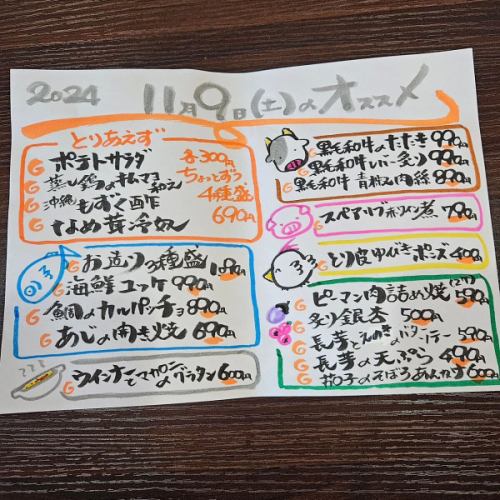 2024 11月9日(土)のオススメ
とりあえず
ポテトサラダ
蒸し鶏のキムマヨ和え
沖縄もずく酢
なめ茸冷奴
各300円
ちょっとずつ
4種盛
690円
お造り3種盛 1090円
海鮮ユッケ 990円
鯛のカルパッチョ 890円
あじの開き焼 690円
ウインナーとマカロニのグラタン 600円
黒毛和牛のたたき 990円
黒毛和牛レバー炙り 990円
黒毛和牛青椒肉絲 890円
スペアリブ赤ワイン煮 790円
とり皮ゆびきポンズ 400円
ピーマン肉詰め焼(2ヶ) 590円
炙り銀杏 500円
長芋とえのきのバターソテー 590円
長芋の天ぷら 490円
茄子のそぼろあんかけ 600円